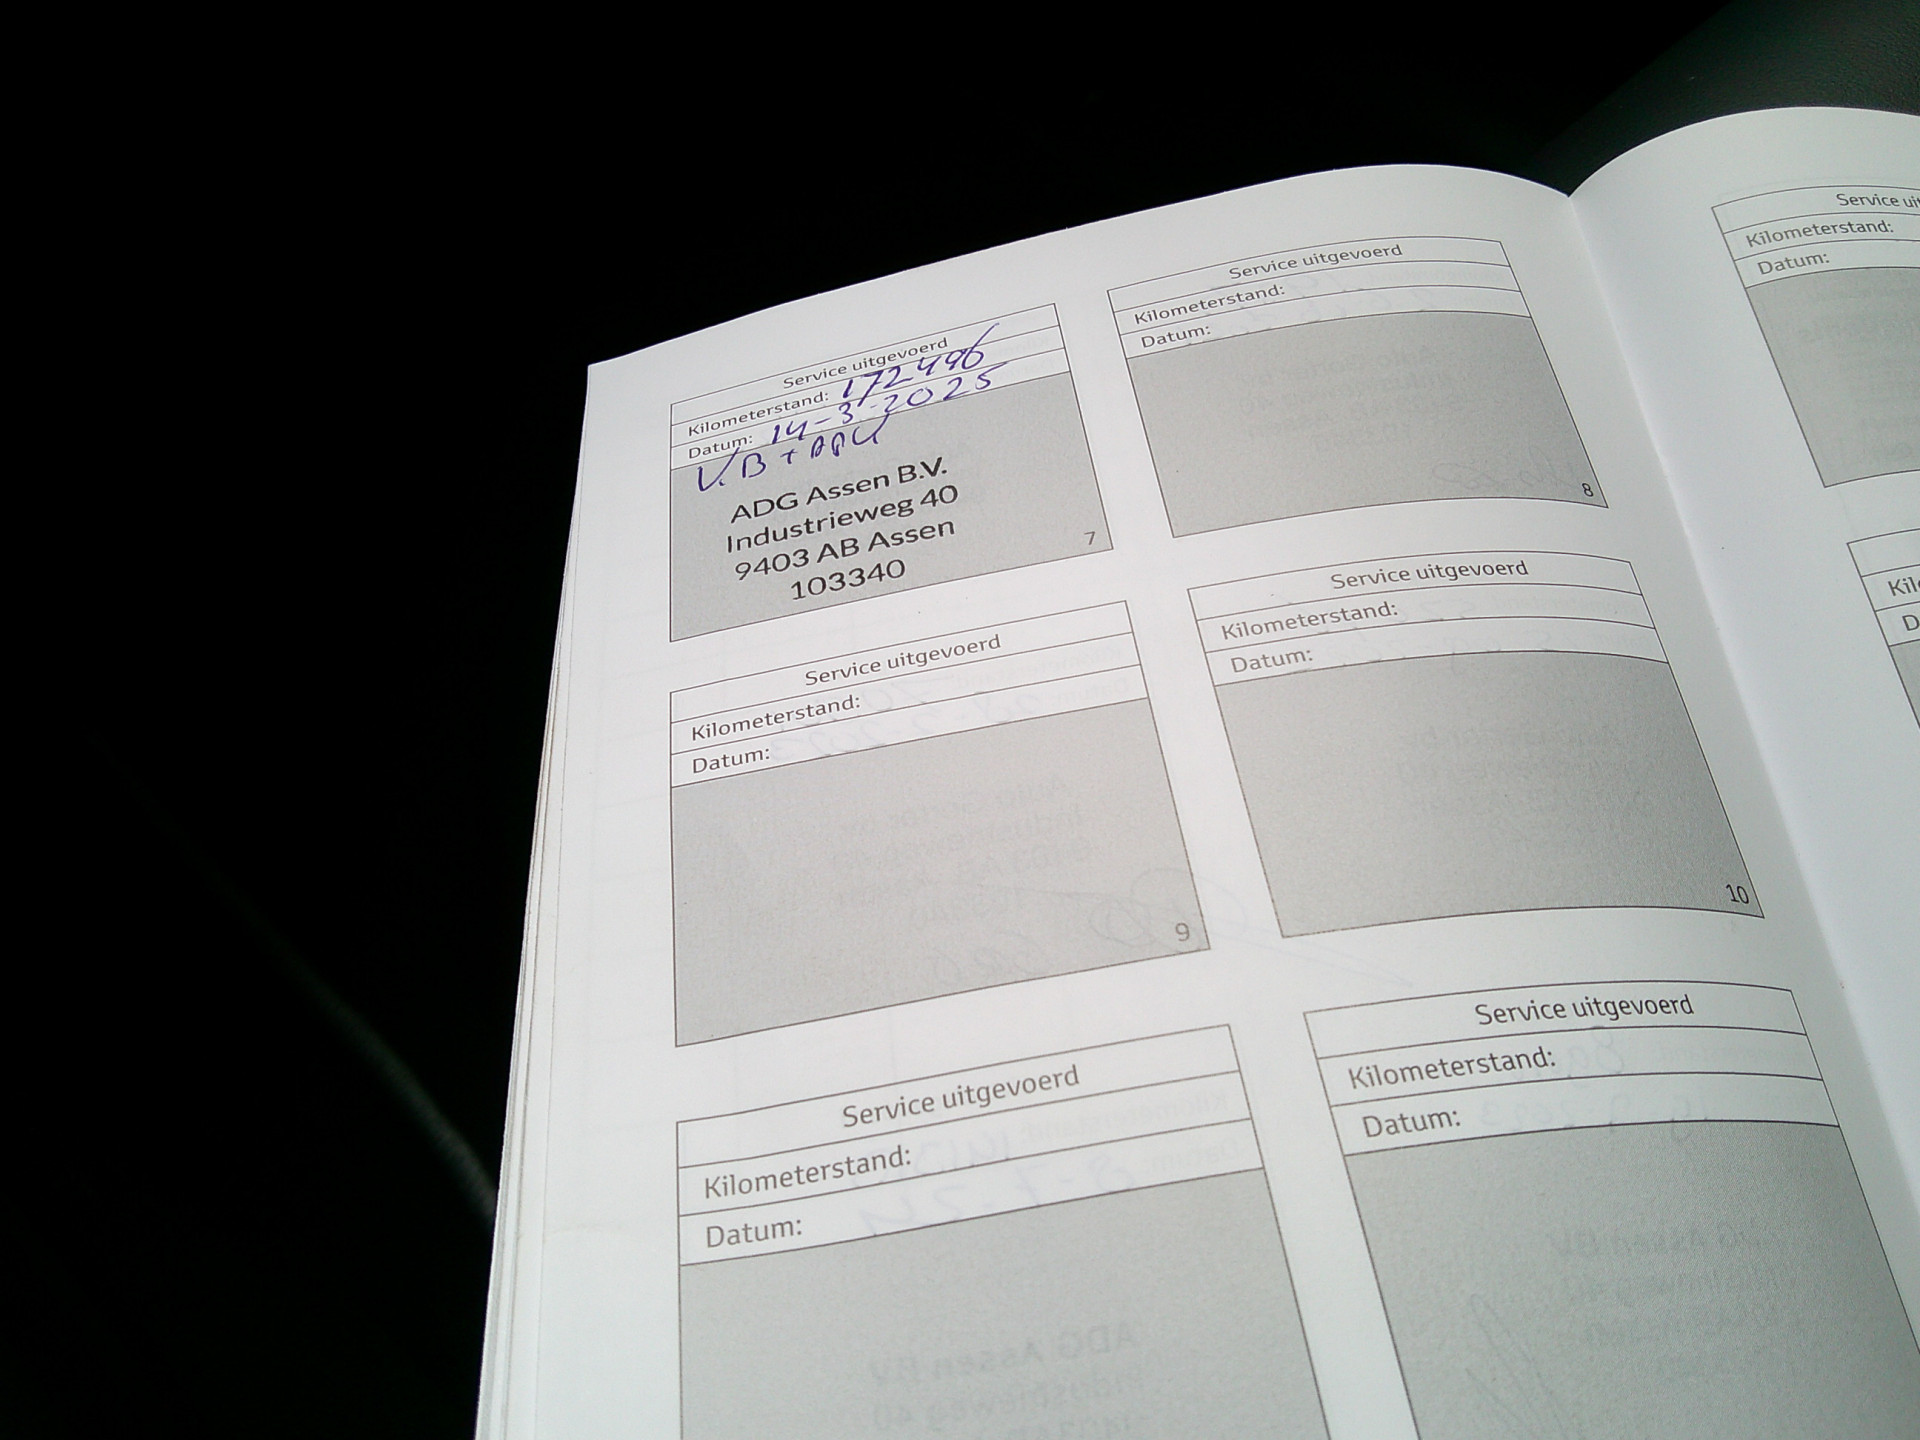 Service uitgevoerd
Kilometerstand: 172496
Datum: 14-3-2025
V.B + APK
ADG Assen B.V.
Industrieweg 40
9403 AB Assen
103340
7
Service uitgevoerd
Kilometerstand:
Datum:
8
Service uitgevoerd
Kilometerstand:
Datum:
9
Service uitgevoerd
Kilometerstand:
Datum:
10
Service uitgevoerd
Kilometerstand:
Datum:
Service uitgevoerd
Kilometerstand:
Datum:
Service uit
Kilometerstand:
Datum:
Kil
D